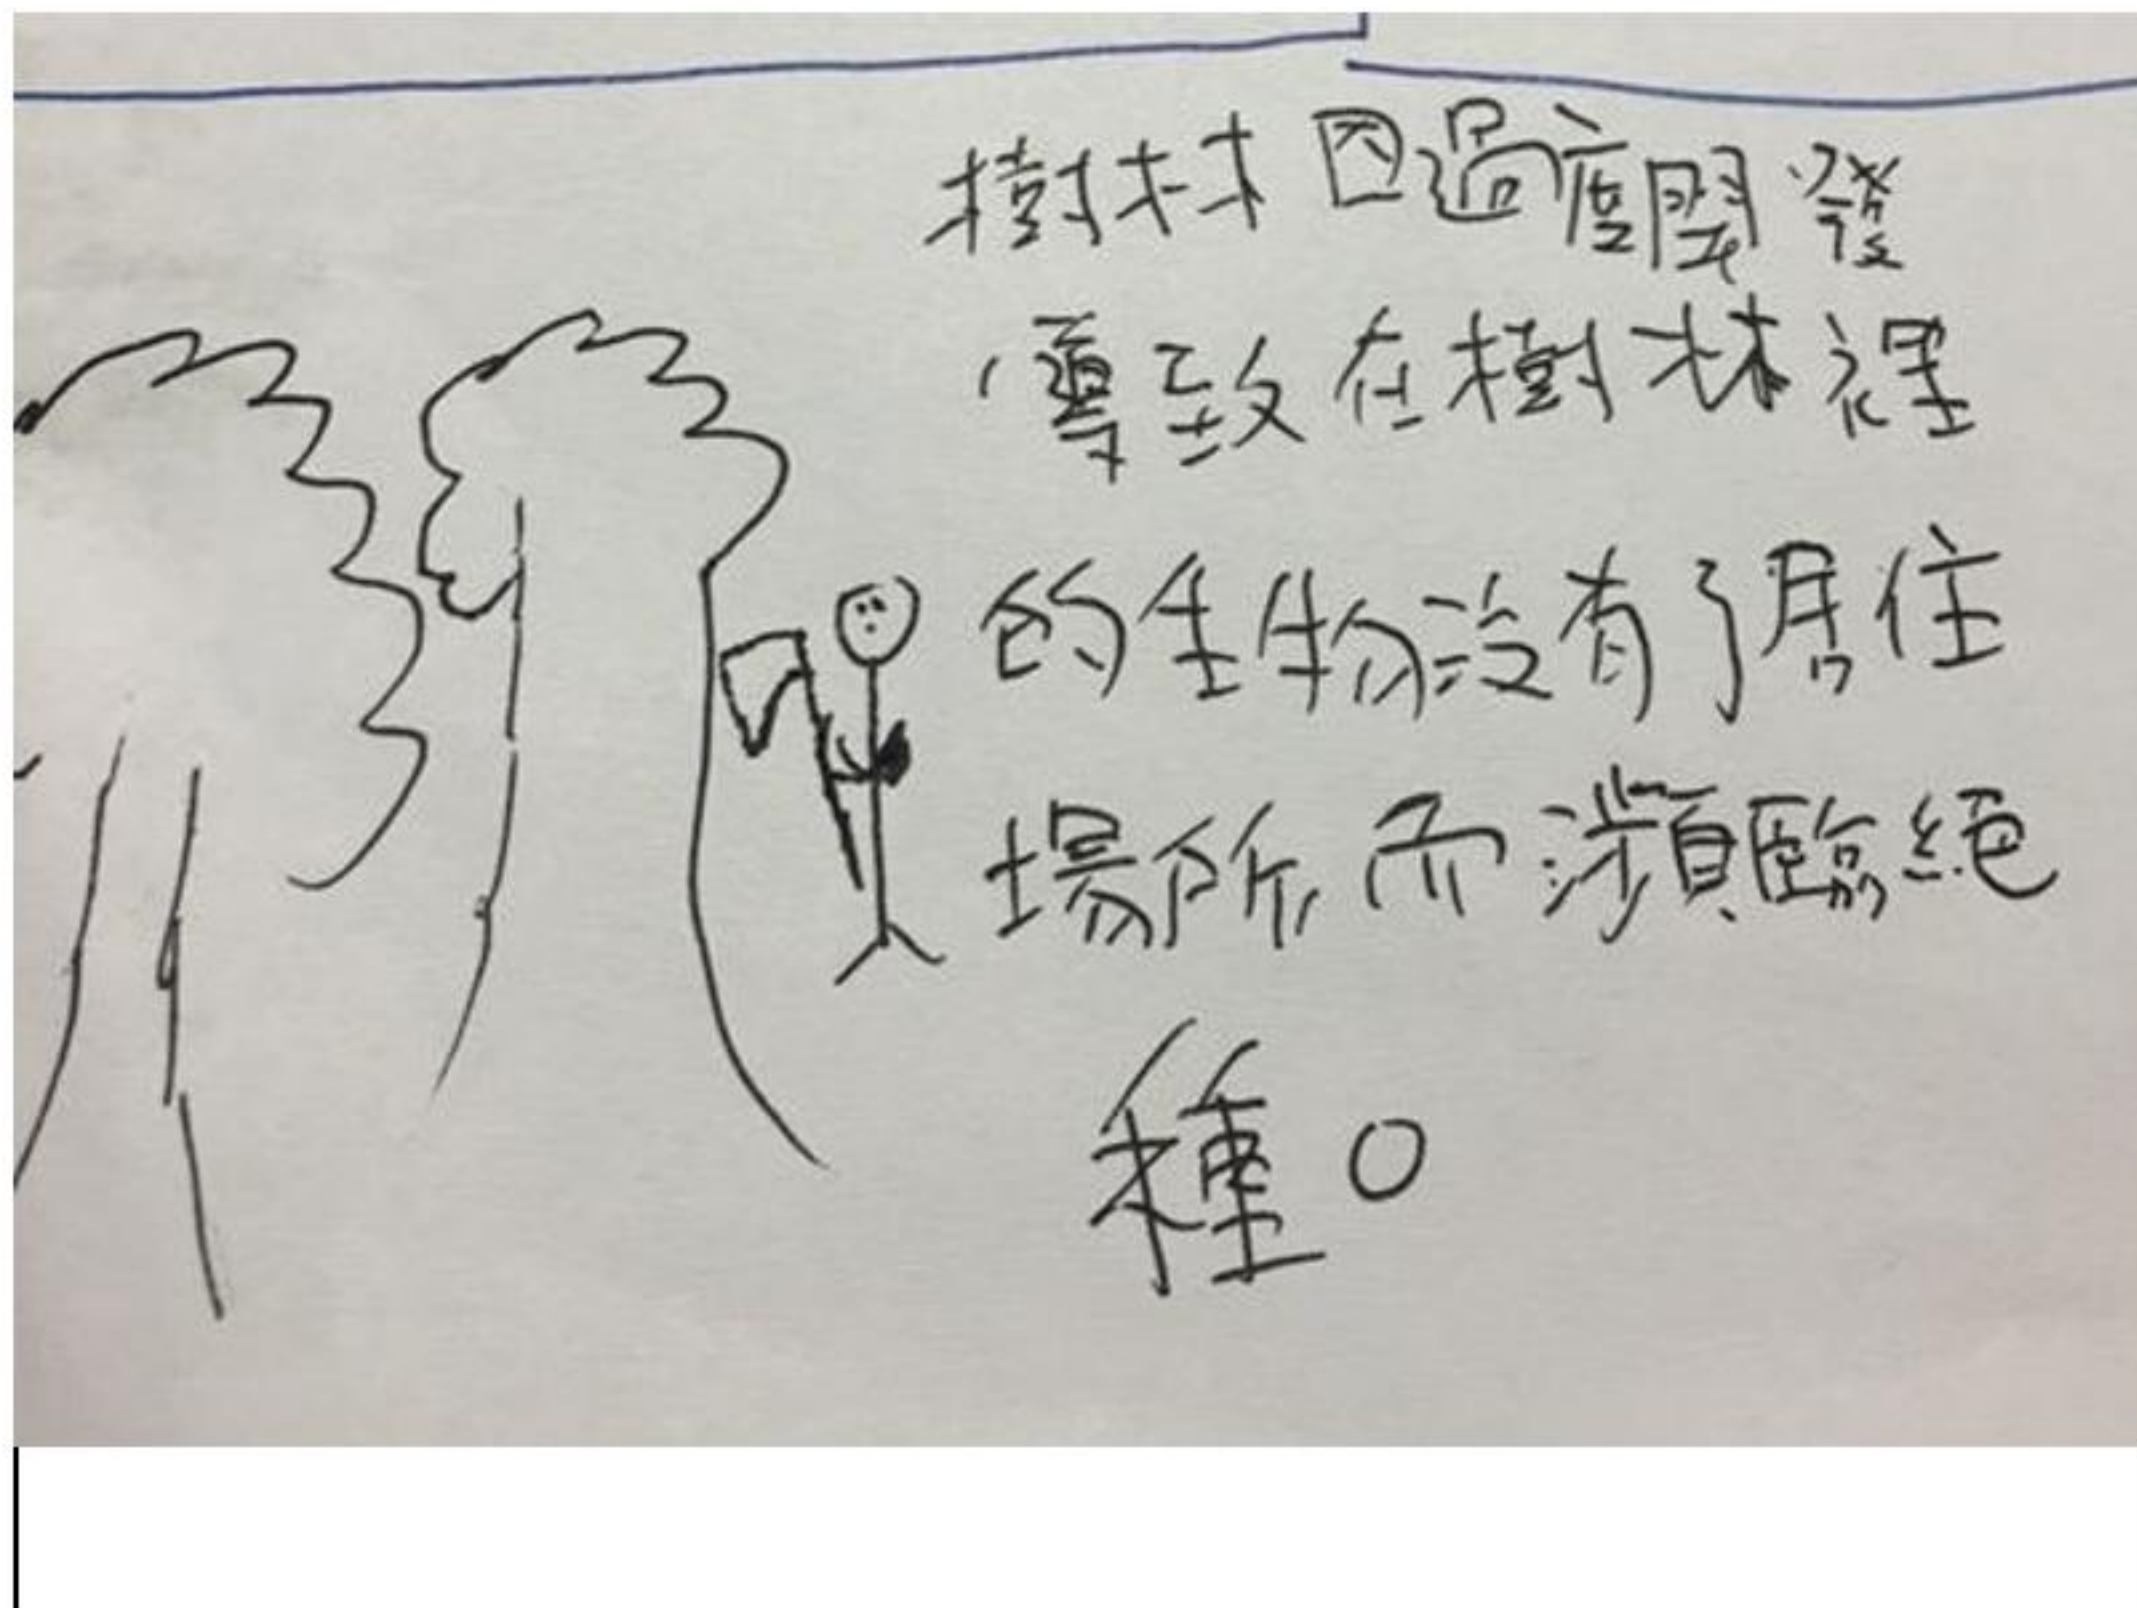 樹林因過度開發
,導致在樹林裡
的生物沒有了居住
場所,而瀕臨絕
種。